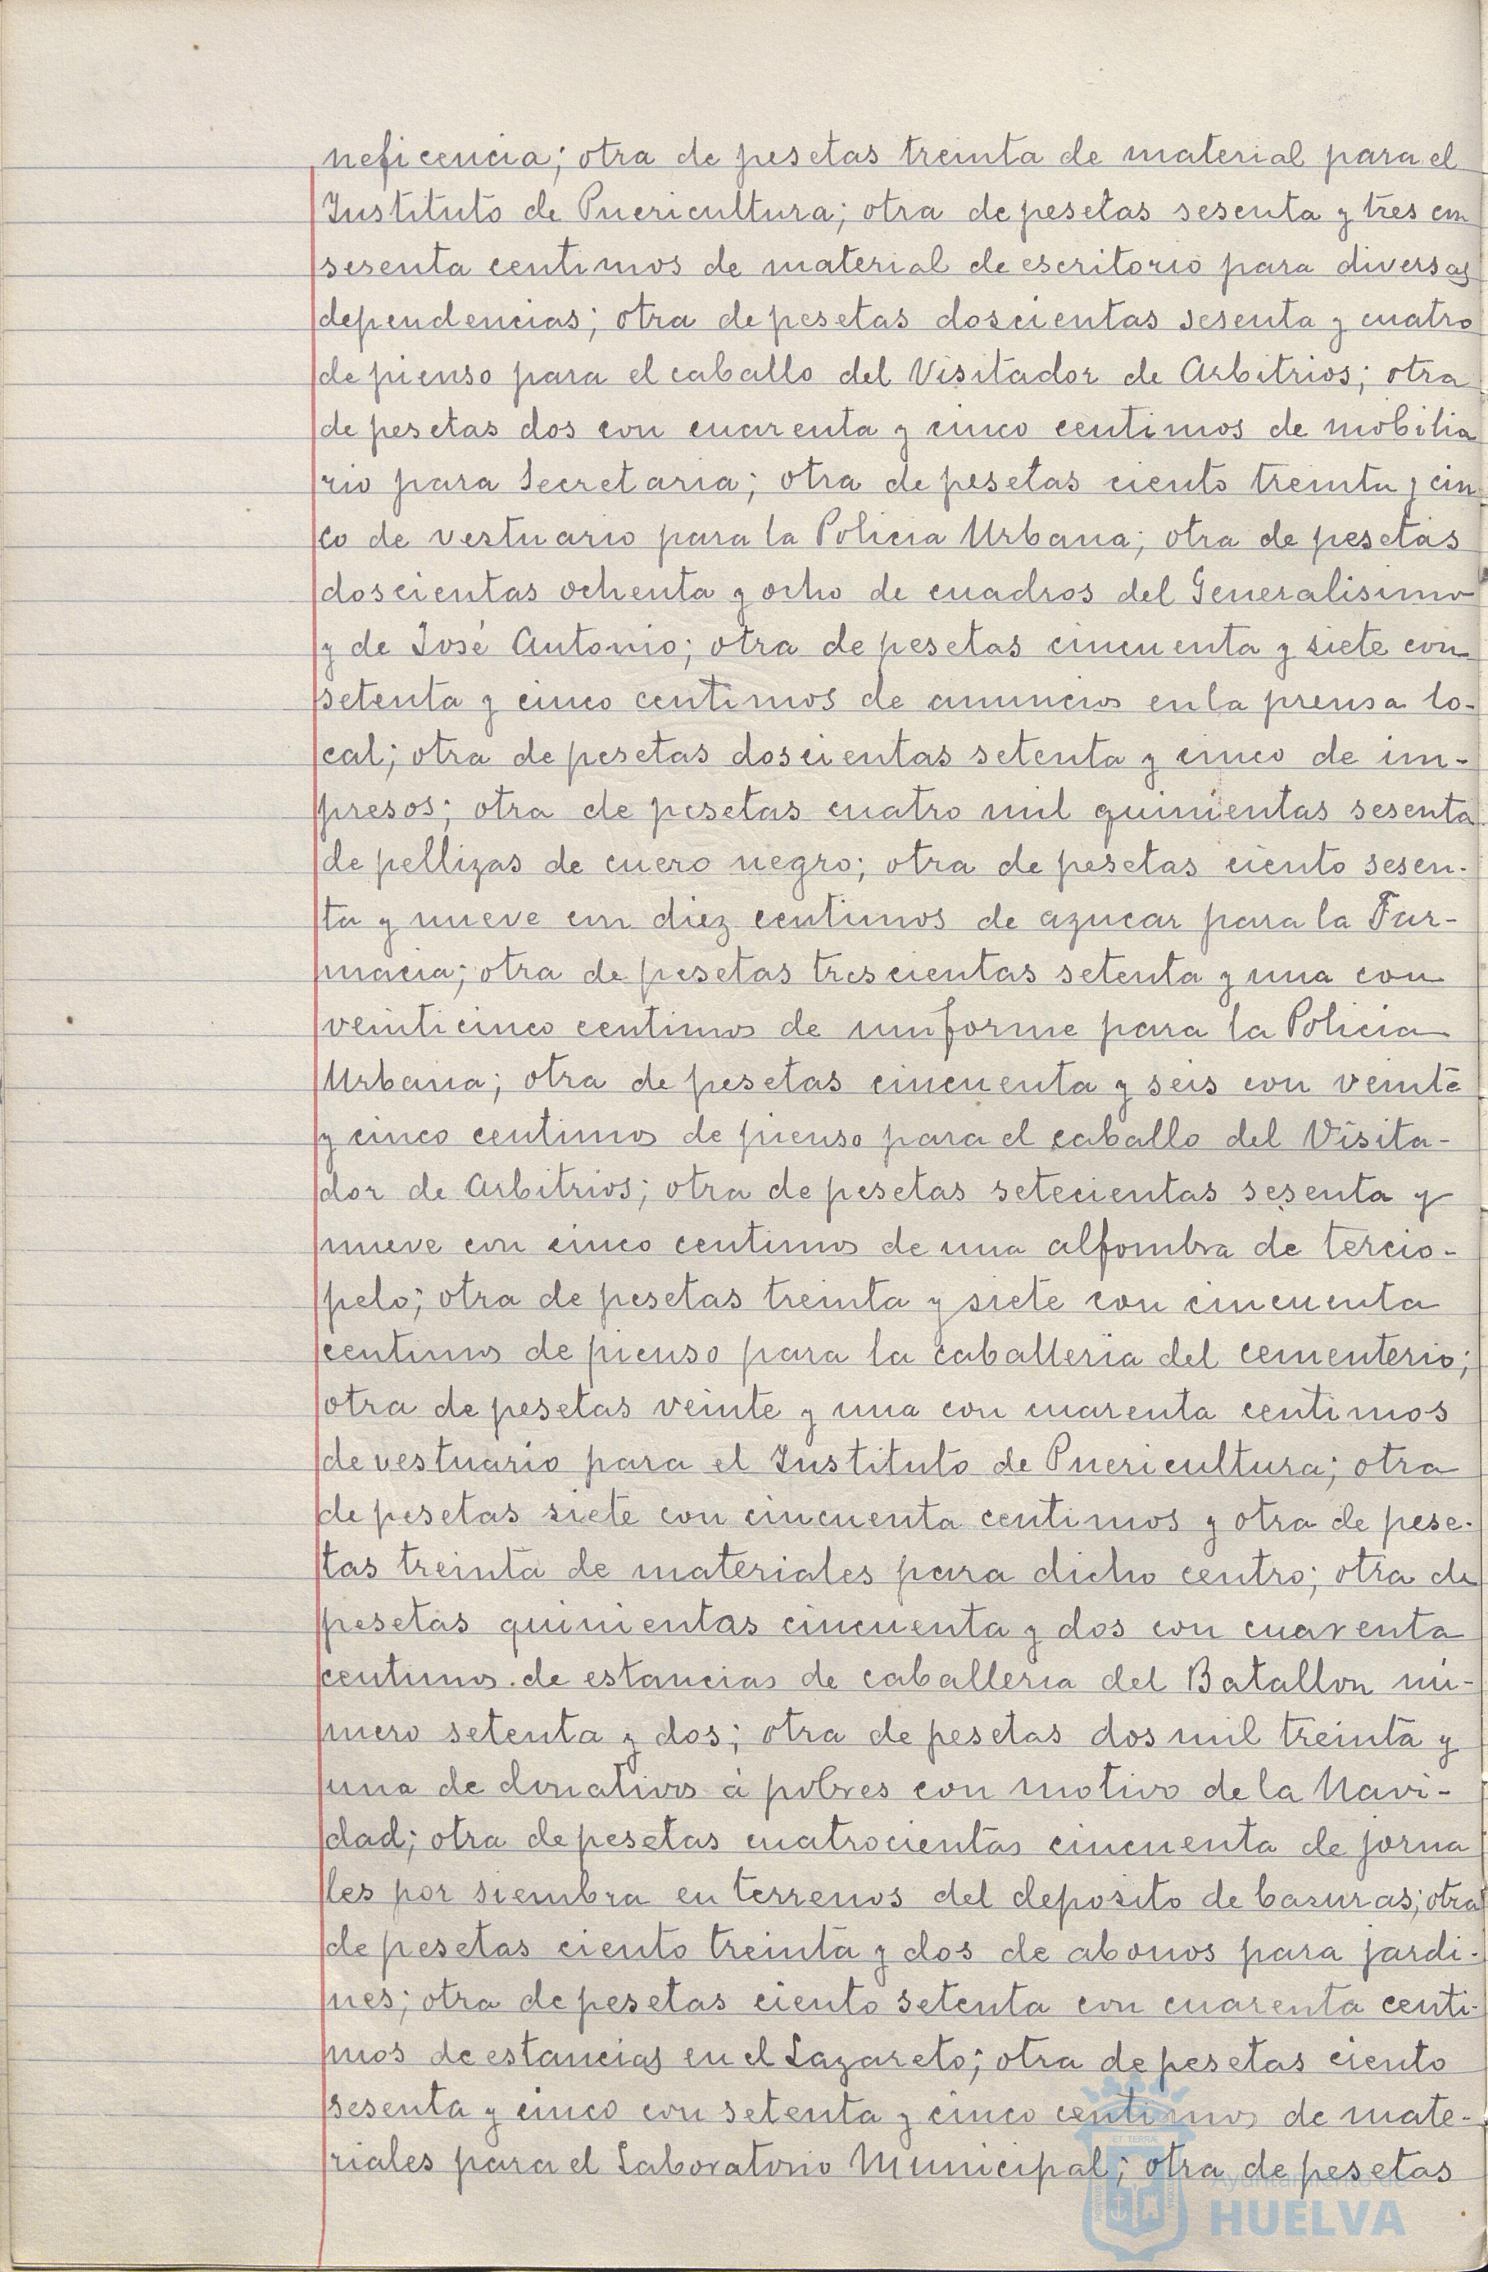 neficencia; otra de pesetas treinta de material para el
Instituto de Puericultura; otra de pesetas sesenta y tres con
sesenta centimos de material de escritorio para diversas
dependencias; otra de pesetas doscientas sesenta y cuatro
de pienso para el caballo del Visitador de Arbitrios; otra
de pesetas dos con cuarenta y cinco centimos de mobilia
rio para Secretaria; otra de pesetas ciento treinta y cin
co de vestuario para la Policia Urbana; otra de pesetas
doscientas ochenta y ocho de cuadros del Generalisimo
y de José Antonio; otra de pesetas cincuenta y siete con
setenta y cinco centimos de anuncios en la prensa lo-
cal; otra de pesetas doscientas setenta y cinco de im-
presos; otra de pesetas cuatro mil quinientas sesenta
de pellizas de cuero negro; otra de pesetas ciento sesen-
ta y nueve con diez centimos de azucar para la Far-
macia; otra de pesetas trescientas setenta y una con
veinticinco centimos de uniforme para la Policia
Urbana; otra de pesetas cincuenta y seis con veinte
y cinco centimos de pienso para el caballo del Visita-
dor de Arbitrios; otra de pesetas setecientas sesenta y
nueve con cinco centimos de una alfombra de tercio-
pelo; otra de pesetas treinta y siete con cincuenta
centimos de pienso para la caballeria del cementerio;
otra de pesetas veinte y una con cuarenta centimos
de vestuario para el Instituto de Puericultura; otra
de pesetas siete con cincuenta centimos y otra de pese-
tas treinta de materiales para dicho centro; otra de
pesetas quinientas cincuenta y dos con cuarenta
centimos de estancias de caballeria del Batallon nú-
mero setenta y dos; otra de pesetas dos mil treinta y
una de donativos á pobres con motivo de la Navi-
dad; otra de pesetas cuatrocientas cincuenta de jorna
les por siembra en terrenos del deposito de basuras; otra
de pesetas ciento treinta y dos de abonos para jardi-
nes; otra de pesetas ciento setenta con cuarenta centi-
mos de estancias en el Lazareto; otra de pesetas ciento
sesenta y cinco con setenta y cinco centimos de mate-
riales para el Laboratorio Municipal; otra de pesetas
Ayuntamiento de
HUELVA